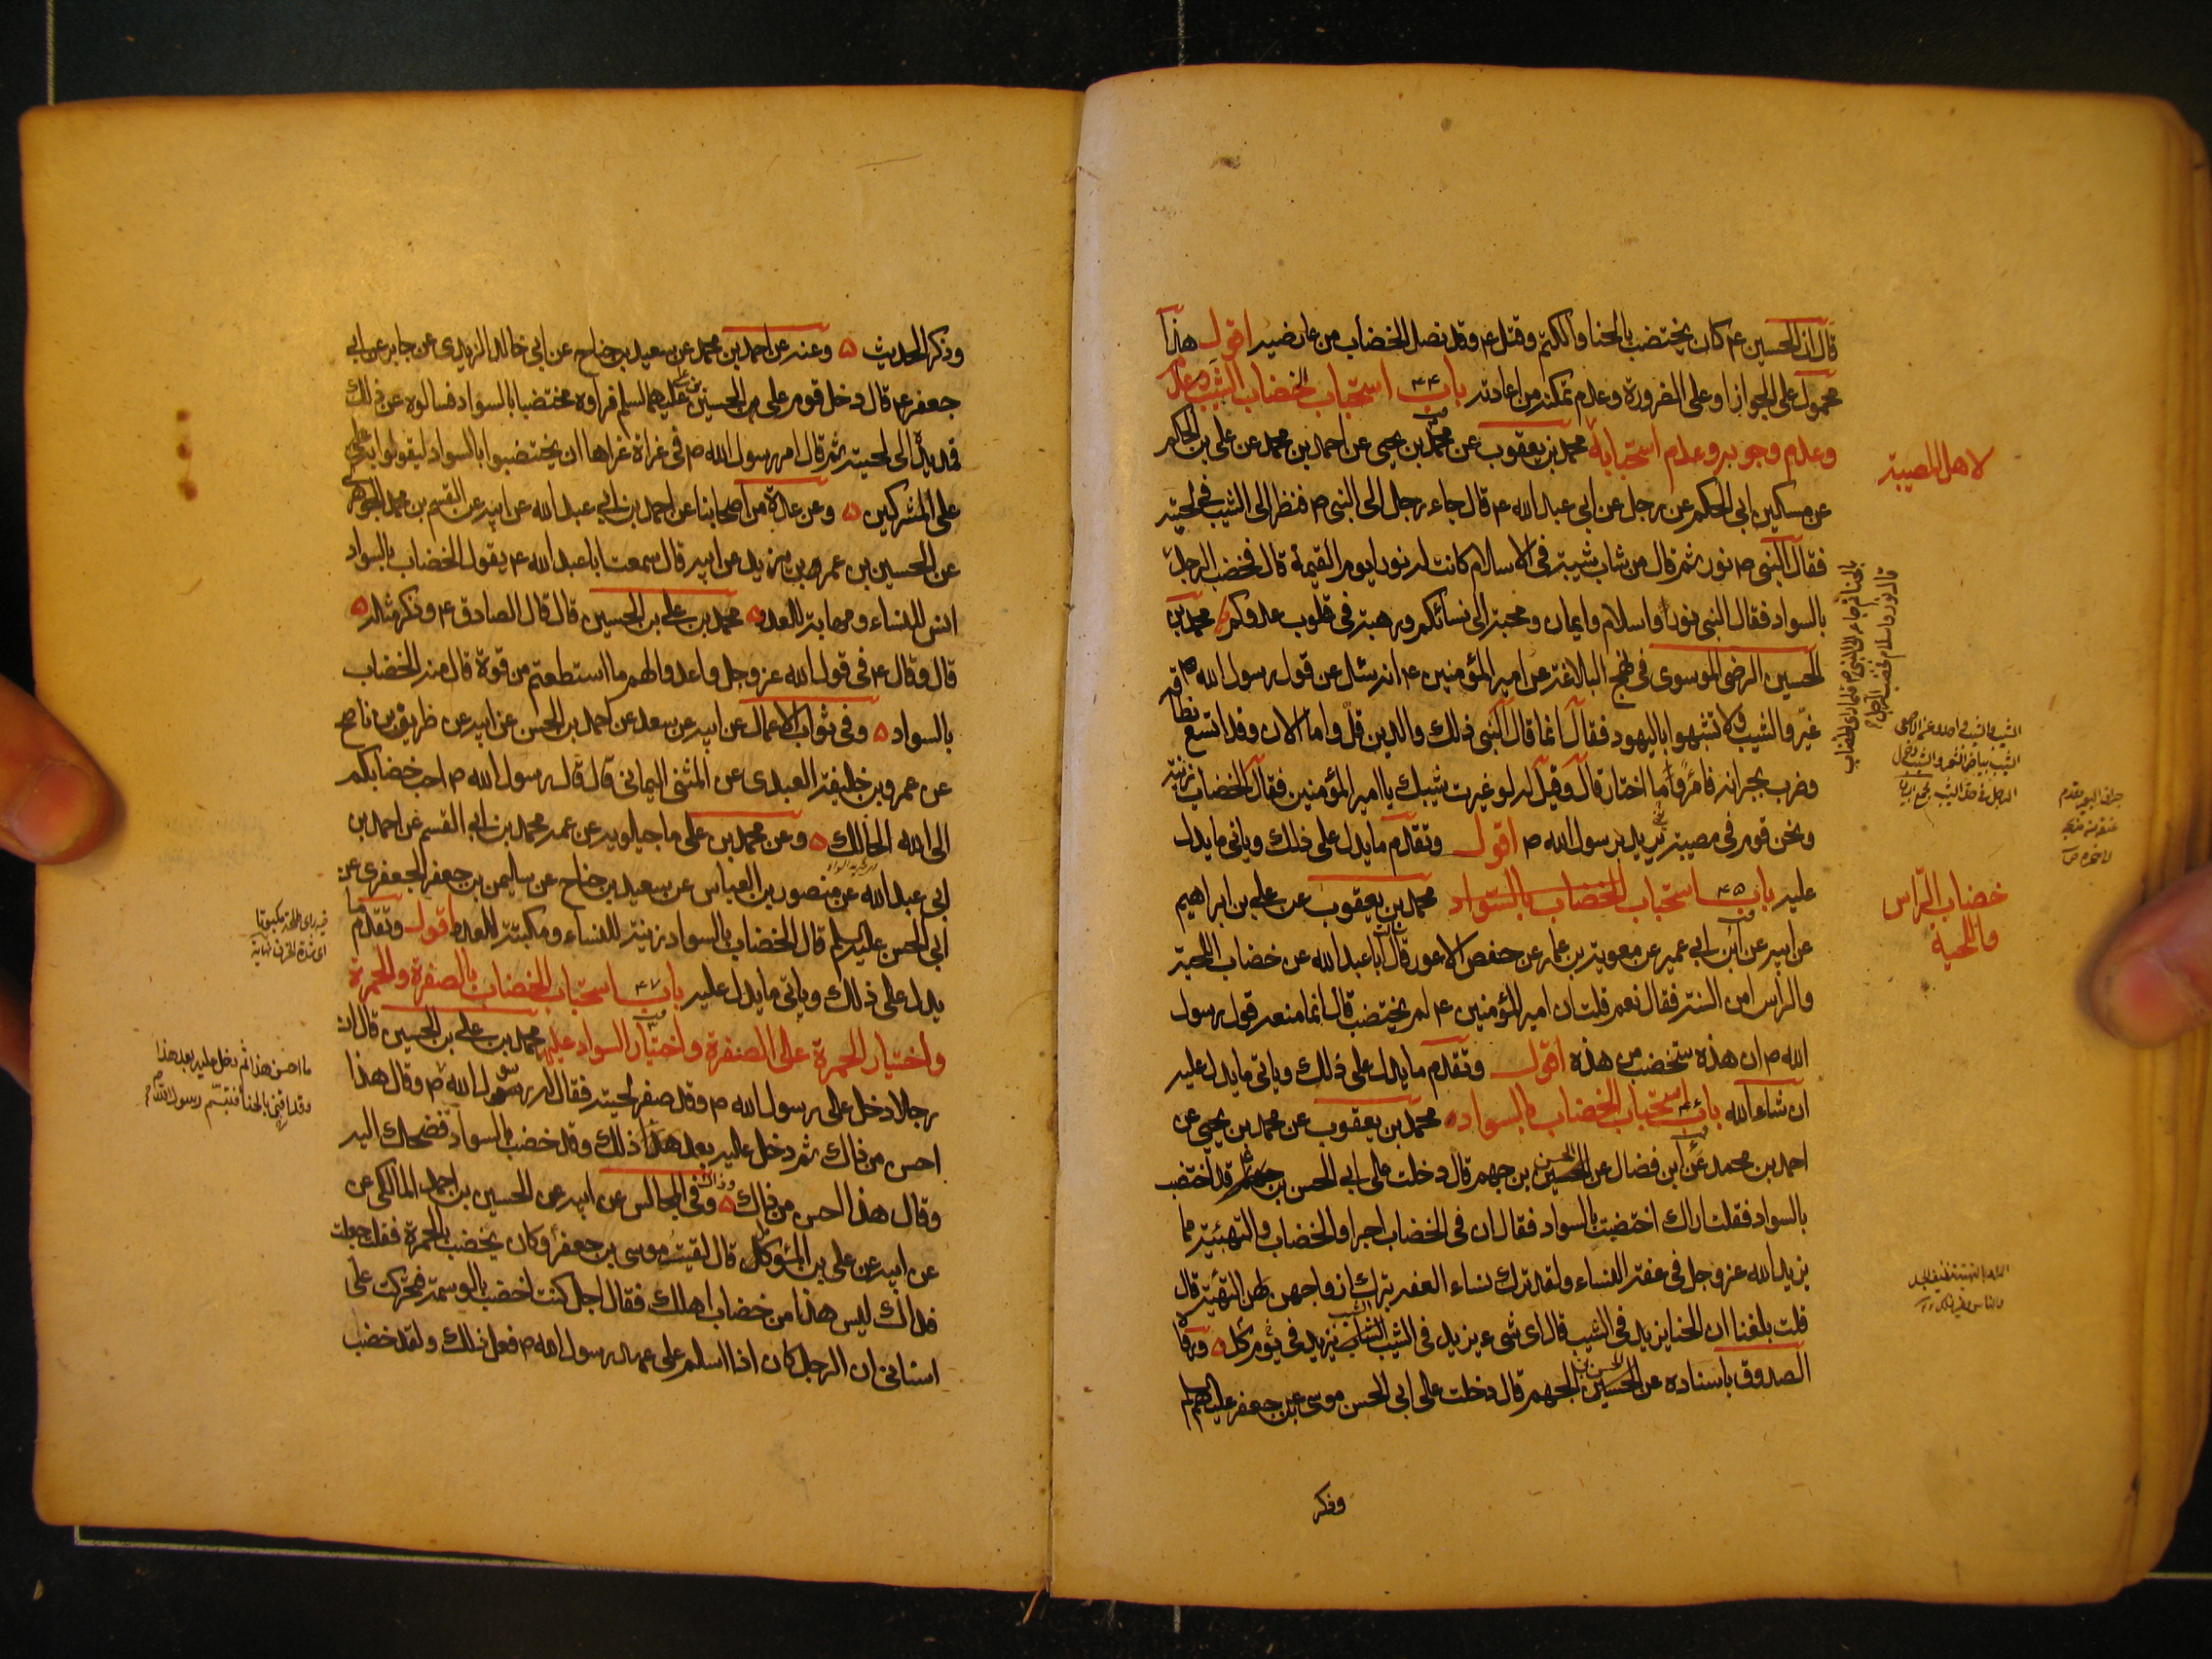 قال ان الحسين ع كان يختضب بالحنا والكتم وقتل ع وقد نصل الخضاب من عارضيه اقول هذا
محمول على الجواز او على الضرورة وعدم تمكنه من اعادته باب ۴۴ استحباب خضاب الشيب وعد
وعدم وجوبه وعدم استحبابه محمد بن يعقوب عن محمد بن يحيى عن احمد بن محمد عن على بن الحكم
لاهل المصيبة
عن مسكين ابى الحكم عن رجل عن ابى عبد الله ع قال جاء رجل الى النبى ص فنظر الى الشيب فى لحيته
فقال النبى ص نور ثم قال من شاب شيبة فى الاسلام كانت له نورا يوم القيمة قال فخضب الرجل
بالحنا ثم جاء الى النبى ص فلما راى الخضاب
قال نور واسلام فخضب الرجل
بالسواد فقال النبى نور واسلام وايمان ومحبة الى نسائكم ورهبة فى قلوب عدوكم محمد بن
الحسين الرضى الموسوى فى نهج البلاغة عن امير المؤمنين ع انه سئل عن قول رسول الله ص
غيروا الشيب ولا تشبهوا باليهود فقال انما قال النبى ذلك والدين قل واما الان وقد اتسع نطاقه
وضرب بجرانه فامرؤ وما اختار قال وقيل له لو غيرت شيبك يا امير المؤمنين فقال الخضاب زينة
ونحن قوم فى مصيبة يريد برسول الله ص اقول وتقدم ما يدل على ذلك وياتى ما يدل
عليه باب ۴۵ استحباب الخضاب بالسواد محمد بن يعقوب عن على بن ابراهيم
خضاب الراس
واللحية
عن ابيه عن ابن ابى عمير عن معوية بن عمار عن حفص الاعور قال سالت ابا عبد الله عن خضاب اللحية
والراس امن السنة فقال نعم قلت ان امير المؤمنين ع لم يختضب قال انما منعه قول رسول
الله ص ان هذه ستخضب من هذه اقول وتقدم ما يدل على ذلك وياتى ما يدل عليه
ان شاء الله باب ۴۶ استحباب الخضاب بالسواد محمد بن يعقوب عن محمد بن يحيى عن
احمد بن محمد عن ابن فضال عن الحسن بن جهم قال دخلت على ابى الحسن ع قد اختضب
بالسواد فقلت اراك اختضبت بالسواد فقال ان فى الخضاب اجرا والخضاب والتهيئة مما
يزيد الله عز وجل فى عفة النساء ولقد ترك نساء العفة بترك ازواجهن لهن التهيئة قال
قلت بلغنا ان الحنا يزيد فى الشيب قال اى شى يزيد فى الشيب الشيب يزيد فى كل يوم ورواه
الصدوق باسناده عن الحسن بن الجهم قال دخلت على ابى الحسن موسى بن جعفر عليهم السلم
وذكر
وذكر الحديث وعنه عن احمد بن محمد عن سعيد بن جناح عن ابى خالد الزيدى عن جابر عن ابى
جعفر ع قال دخل قوم على على بن الحسين عليهما السلم فراوه مختضبا بالسواد فسالوه عن ذلك
فمد يده الى لحيته ثم قال امر رسول الله ص فى غزاة غزاها ان يختضبوا بالسواد ليقووا به
على المشركين وعن عدة من اصحابنا عن احمد بن ابى عبد الله عن ابيه عن القسم بن محمد الجوهر
عن الحسين بن عمر بن يزيد عن ابيه قال سمعت ابا عبد الله ع يقول الخضاب بالسواد
انس للنساء ومهابة للعدو محمد بن على بن الحسين قال قال الصادق ع وذكر مثله
قال وقال ع فى قول الله عز وجل واعدوا لهم ما استطعتم من قوة قال منه الخضاب
بالسواد وفى ثواب الاعمال عن ابيه عن سعد عن احمد بن الحسن عن ابيه عن ظريف بن ناصح
عن عمرو بن خليفة العبدى عن المثنى اليمانى قال قال رسول الله ص احب خضابكم
الى الله الحالك وعن محمد بن على ماجيلويه عن عمه محمد بن ابى القسم عن احمد بن
ابى عبد الله عن منصور بن العباس عن سعيد بن جناح عن سليمن بن جعفر الجعفرى عن
ابى الحسن عليه السلم قال الخضاب بالسواد زينة للنساء ومكبتة للعدو اقول وتقدم ما
يدل على ذلك وياتى ما يدل عليه باب ۴۷ استحباب الخضاب بالصفرة والحمرة
واختيار الحمرة على الصفرة واختيار السواد عليها محمد بن على بن الحسين قال ان
رجلا دخل على رسول الله ص وقد صفر لحيته فقال له رسول الله ص وقال هذا
ما احسن هذا ثم دخل عليه بعد هذا
وقد اقنى بالحنا فتبسم رسول الله ص
احسن من ذاك ثم دخل عليه بعد ذلك وقد خضب بالسواد فضحك اليه
وقال هذا احسن من ذاك وذاك وفى المجالس عن ابيه عن الحسين بن احمد المالكى عن
عن ابيه عن على بن المؤمل قال لقيت موسى بن جعفر وكان يخضب بالحمرة فقلت جعلت
فداك ليس هذا من خضاب اهلك فقال اجل كنت اختضب بالوسمة فتحركت على
اسنانى ان الرجل كان اذا اسلم على عهد رسول الله ص فعل ذلك ولقد خضب